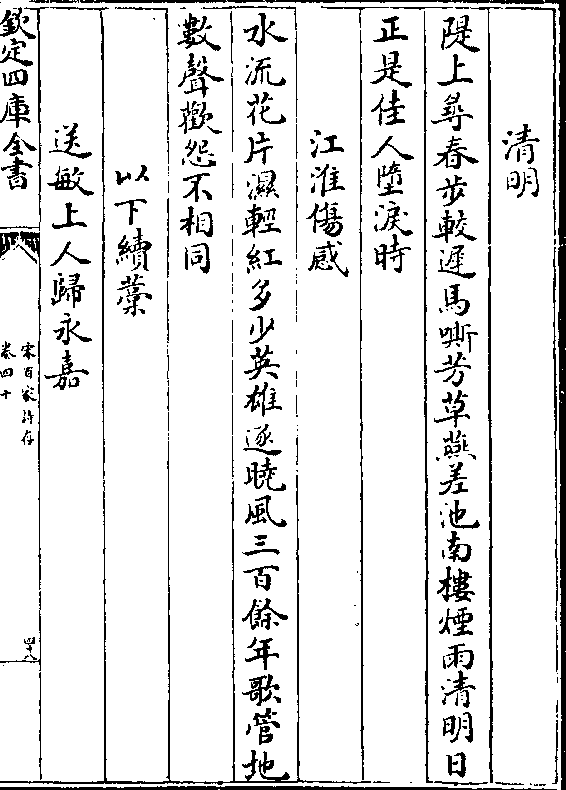 清明
隄上尋春步較遲馬嘶芳草燕差池南樓煙雨清明日
正是佳人墮淚時
江淮傷感
水流花片濕輕紅多少英雄逐曉風三百餘年歌管地
數聲歡怨不相同
以下續藁
送敏上人歸永嘉
欽定四庫全書
宋百家詩存
卷四十
四十八